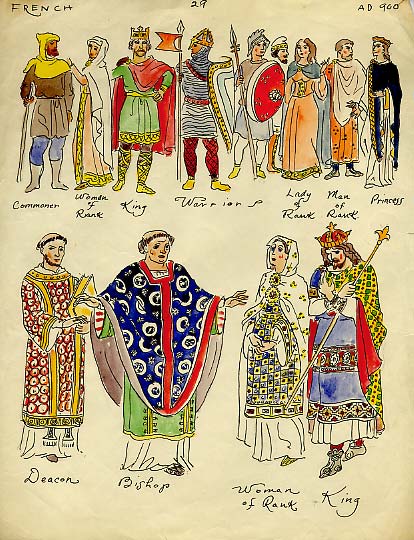 FRENCH 29 AD 900
Commoner
Woman
of
Rank
King
Warriors
Lady
of
Rank
Man
of
Rank
Princess
Deacon
Bishop
Woman
of Rank
King